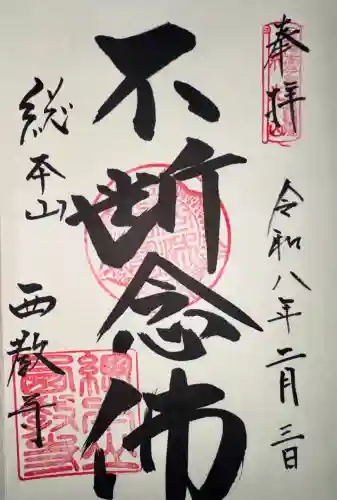 奉拝
令和八年二月三日
不断念仏
総本山
西教寺